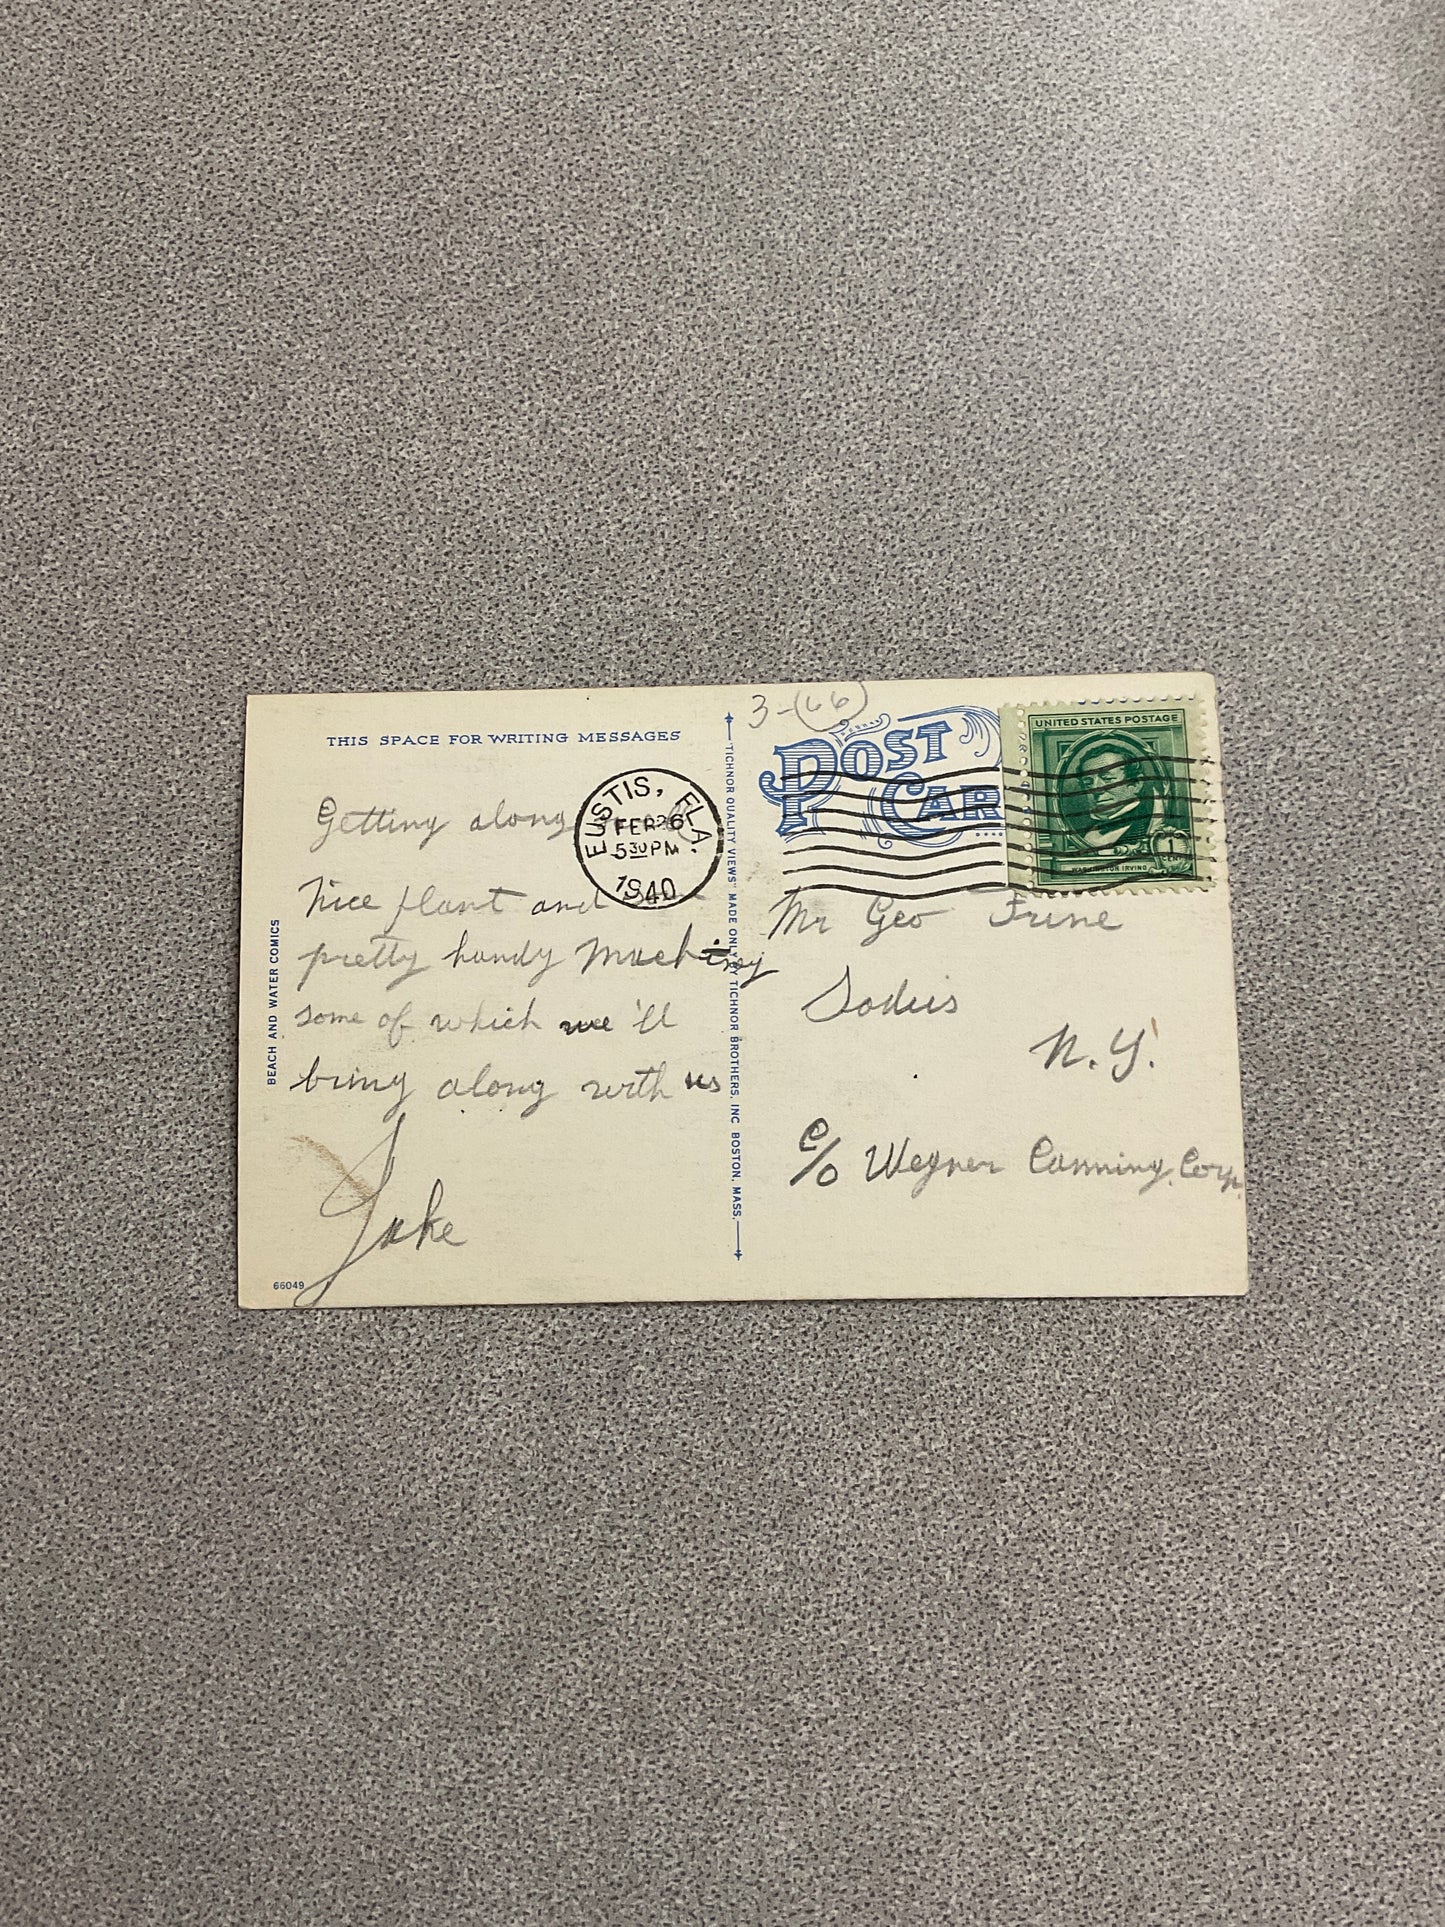 THIS SPACE FOR WRITING MESSAGES
EUSTIS, FLA.
FEB 26
5 30 PM
1940
Getting along
Nice plant and
pretty handy Machinery
some of which we'll
bring along with us
Jake
BEACH AND WATER COMICS
66049
"TICHNOR QUALITY VIEWS" MADE ONLY BY TICHNOR BROTHERS, INC BOSTON, MASS.
3-(66)
POST
CAR
UNITED STATES POSTAGE
1
CENT
WASHINGTON IRVING
Mr Geo
Sodus
N.Y.
c/o Wegner Canning Corp.